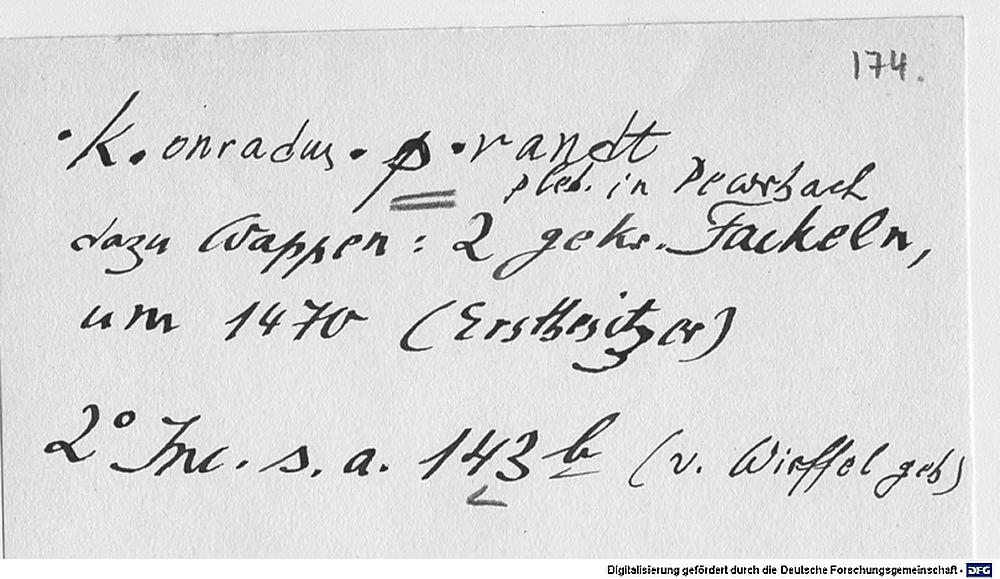 174.
· K. onradus · p · randt
pleb. in Pewrbach
dazu Wappen : 2 gekr. Fackeln,
um 1470 (Erstbesitzer)
2° Inc. s. a. 143 b (v. Wirffel geb)
Digitalisierung gefördert durch die Deutsche Forschungsgemeinschaft - DFG